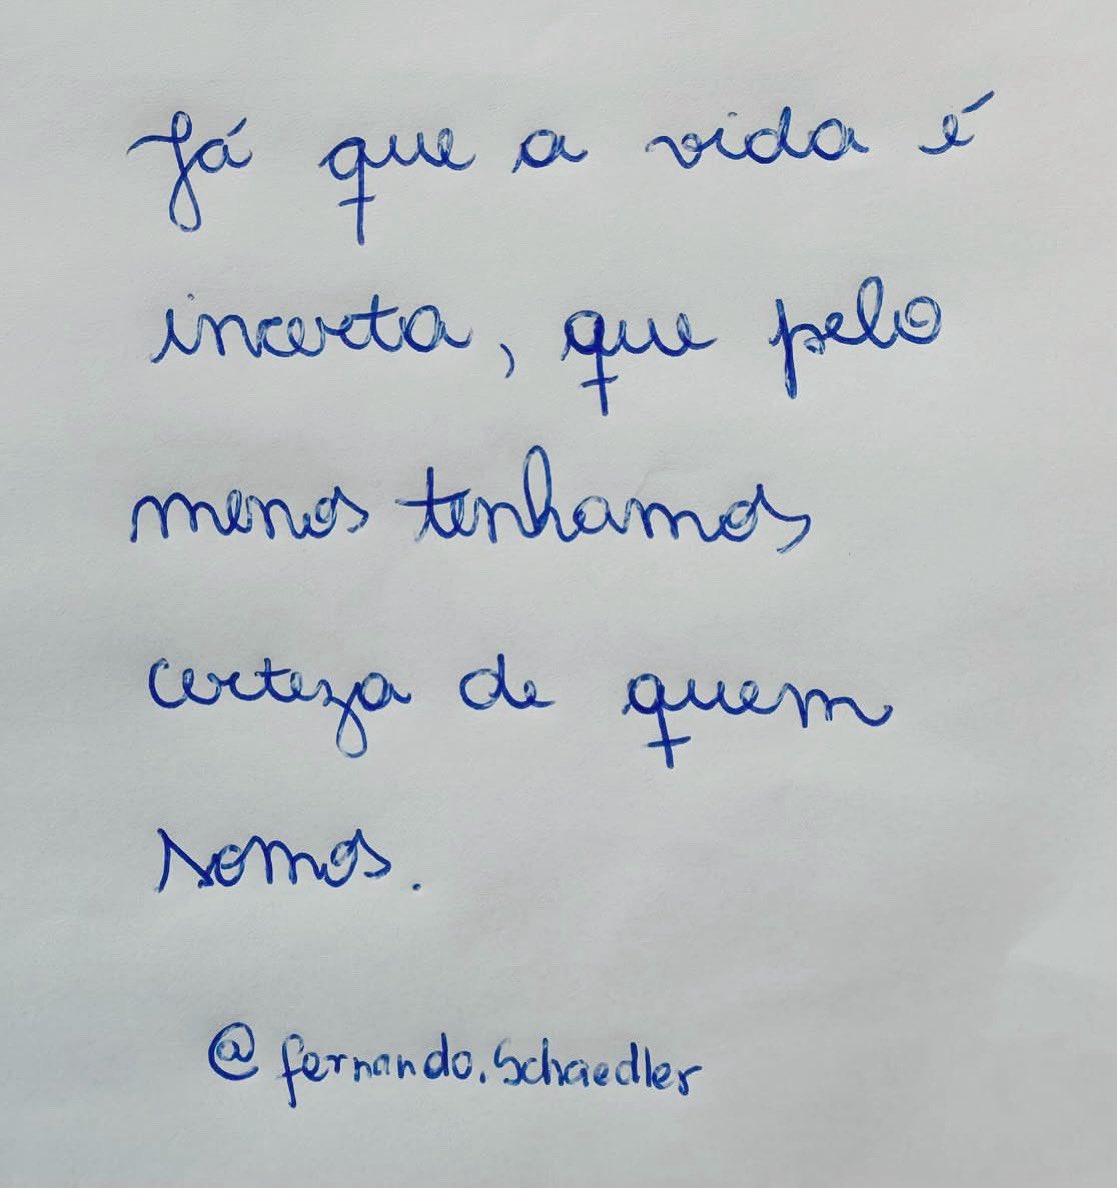 Já que a vida é
incerta, que pelo
menos tenhamos
certeza de quem
somos.
@fernando.schaedler